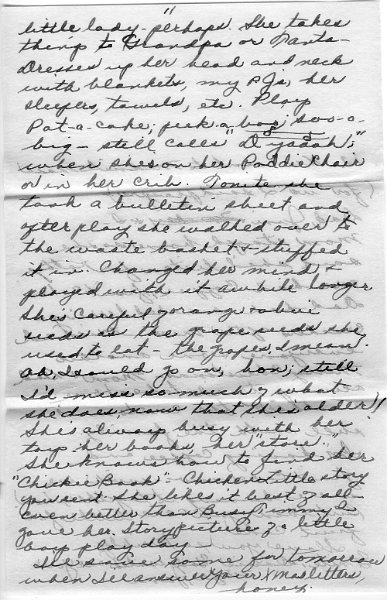 11
little lady - perhaps. She takes
things to Grandpa or Tanta -
Dresses up her head and neck
with blankets, my PJs, her
sleepers, towels, etc. Plays
Pat-a-cake, peek-a-boo, soo-o-
big - still calls
when she's on her Poddie Chair
or in her crib. Tonite she
took a bulletin sheet and
after play she walked over to
the waste basket & stuffed
it in. Changed her mind &
played with it awhile longer.
She's careful of orange & olive
seeds as the grape seeds she
used to eat - the grapes, I mean!
Oh, I could go on, hon; still
I'd miss so much of what
she does, now that she's older!!
She's always busy with her
toys, her books, her "store."
She knows how to find her
"Chickie Book" - Chicken Little story
you sent. She likes it best of all -
even better than Busy Timmy I
gave her. Story picture of a little
boy's play day -
I'll save some for tomorrow
when I'll answer your letters,
honey.